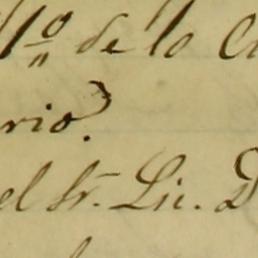 de lo
rio?
el Sr. Lic. D